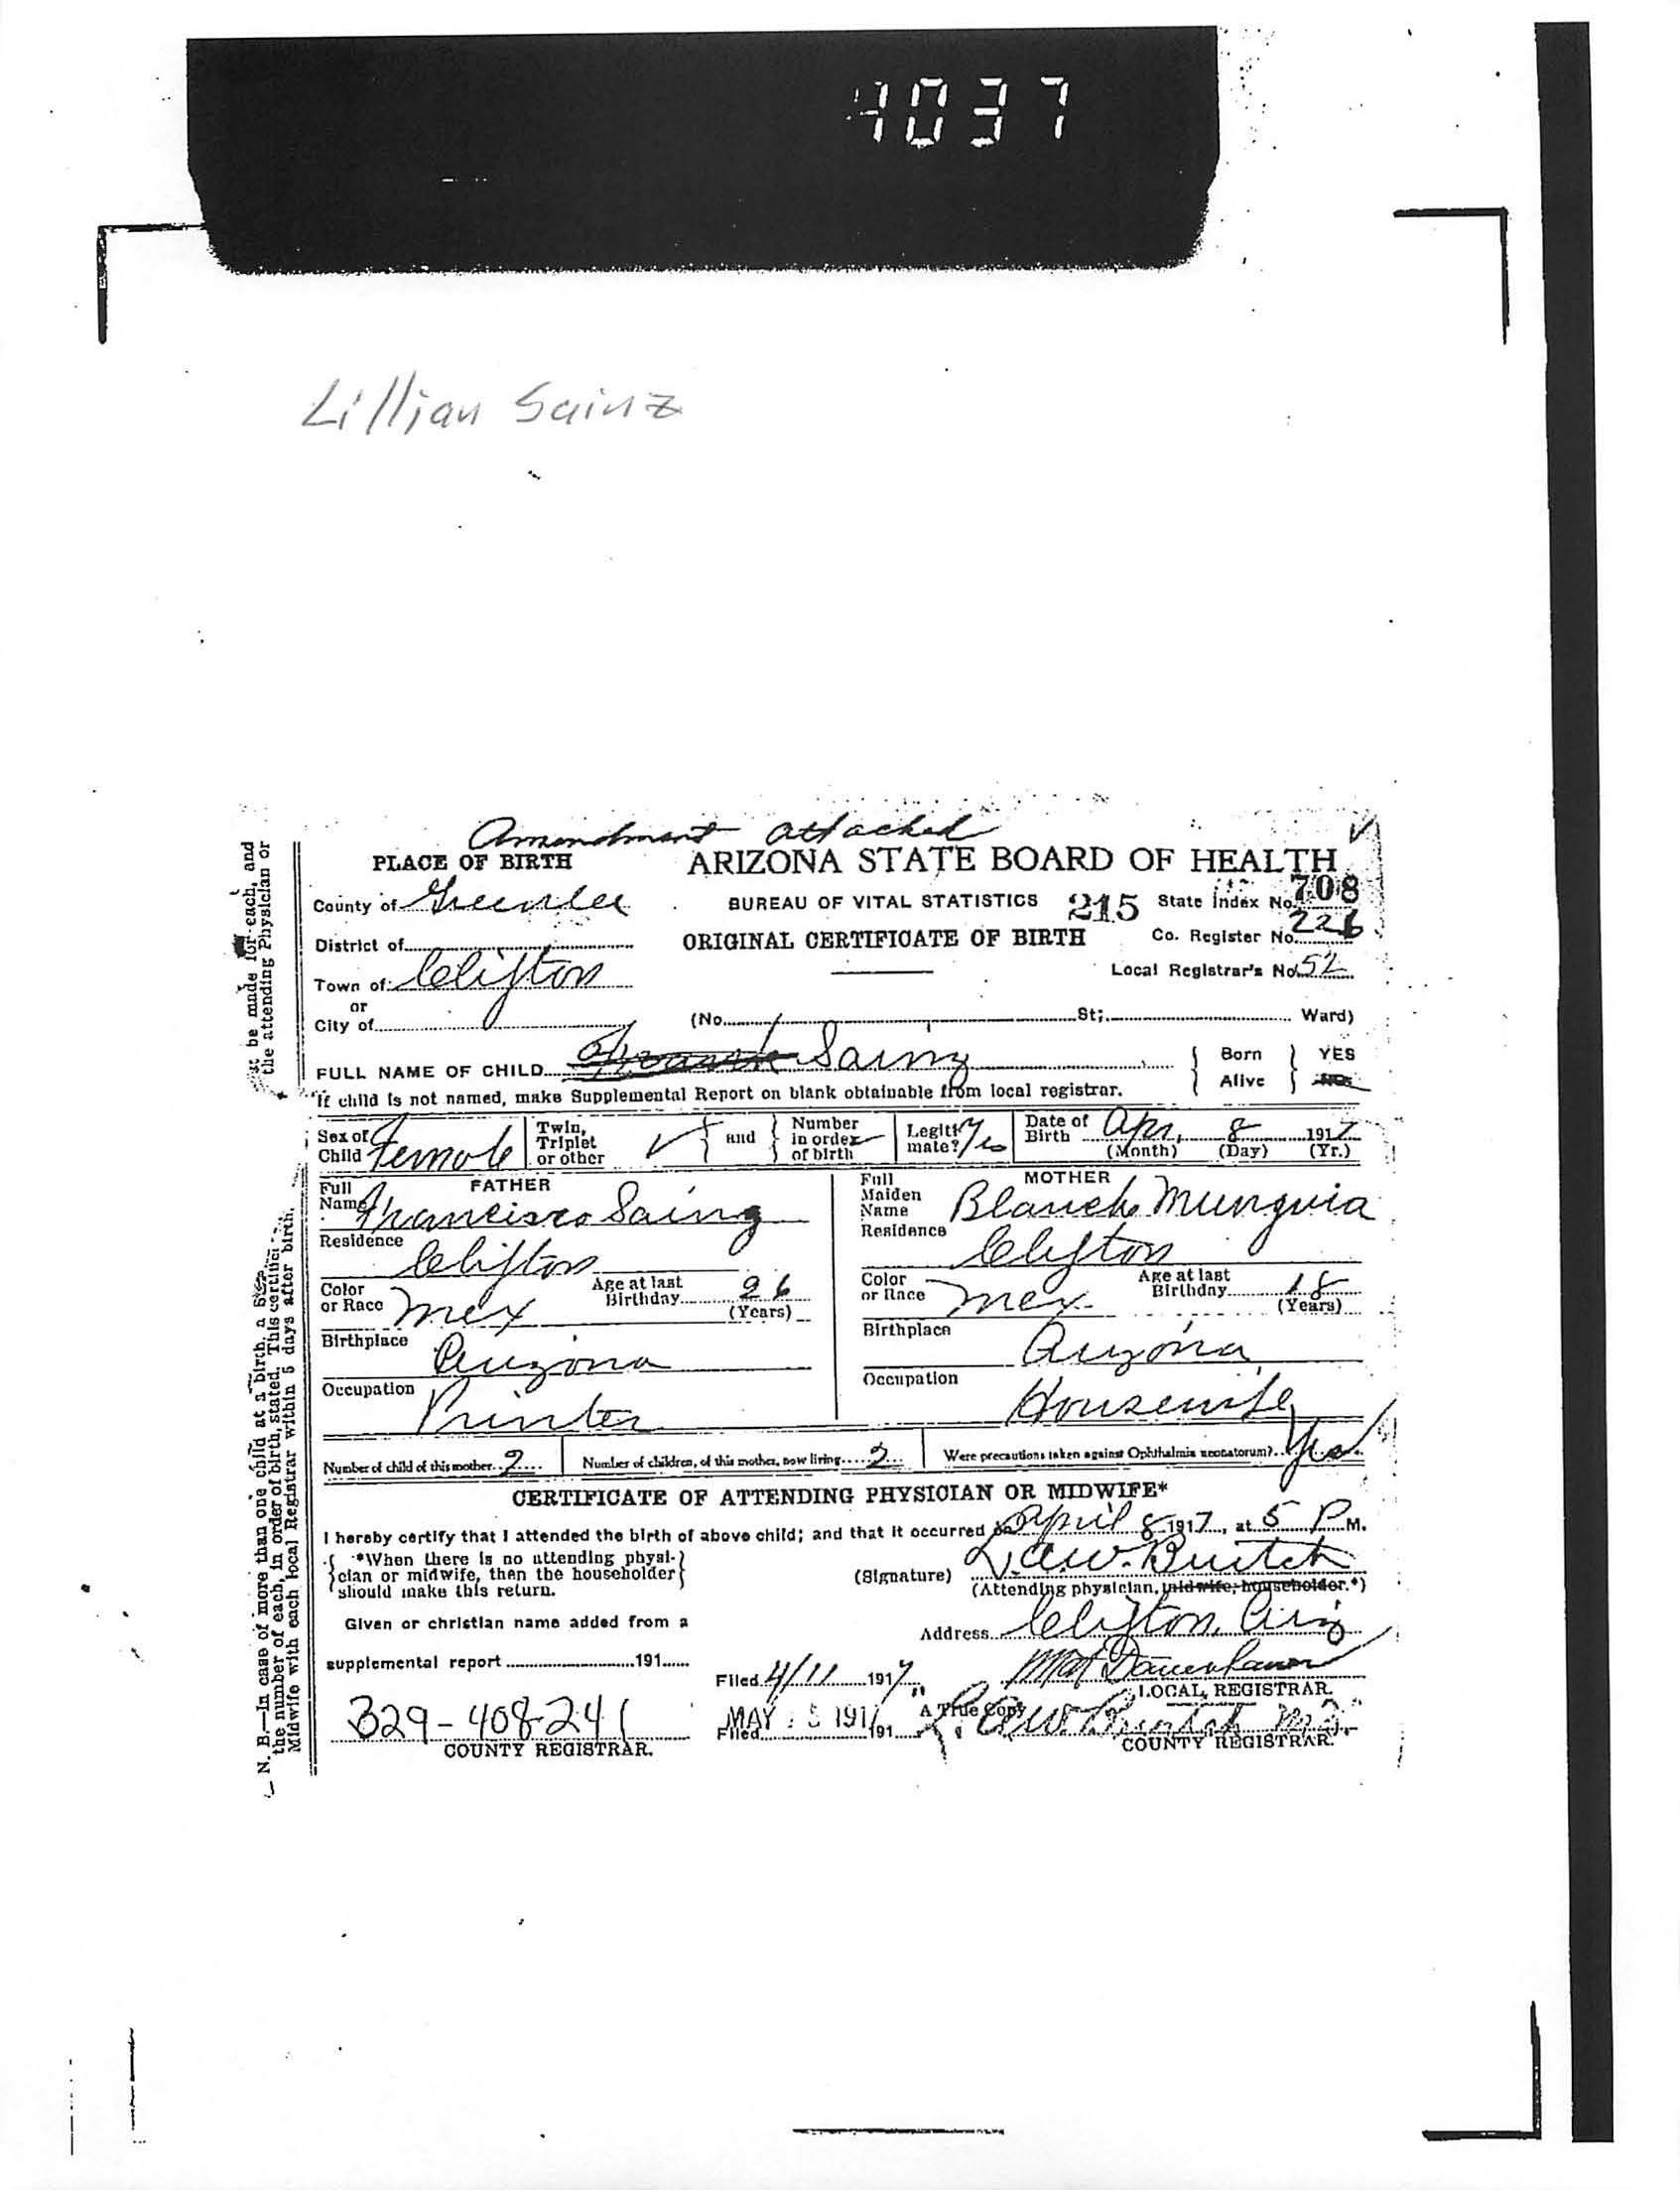 4037
Lillian Sainz
Amendment attached
PLACE OF BIRTH
ARIZONA STATE BOARD OF HEALTH
County of Greenlee
BUREAU OF VITAL STATISTICS 215 State Index No. 708
District of
ORIGINAL CERTIFICATE OF BIRTH Co. Register No. 226
Town of Clifton
Local Registrar's No. 52
or
City of (No. St; Ward)
FULL NAME OF CHILD Sainz Born Alive YES NO
If child is not named, make Supplemental Report on blank obtainable from local registrar.
Sex of Child Female Twin, Triplet or other and Number in order of birth Legitimate? Yes Date of Birth Apr. 8 1917
(Month) (Day) (Yr.)
FATHER
Full Name Francisco Sainz
Residence Clifton
Color or Race Mex Age at last Birthday 26 (Years)
Birthplace Arizona
Occupation Printer
MOTHER
Full Maiden Name Blanche Munguia
Residence Clifton
Color or Race Mex Age at last Birthday 18 (Years)
Birthplace Arizona
Occupation Housewife
Number of child of this mother 2 Number of children, of this mother, now living 2 Were precautions taken against Ophthalmia neonatorum? Yes
CERTIFICATE OF ATTENDING PHYSICIAN OR MIDWIFE*
I hereby certify that I attended the birth of above child; and that it occurred on April 8 1917, at 5 P.M.
*When there is no attending physician or midwife, then the householder should make this return.
(Signature)
(Attending physician, midwife, householder.*)
Given or christian name added from a
Address Clifton, Ariz
supplemental report 191
Filed 4/11 1917
LOCAL REGISTRAR.
329-408-241
COUNTY REGISTRAR.
Filed MAY 5 1917 191
A True Copy
COUNTY REGISTRAR.
N. B.—In case of more than one child at a birth, a
be made for each, and
the number of each, in order of birth, stated. This
the attending Physician or
Midwife with each local Registrar within 5 days after birth.